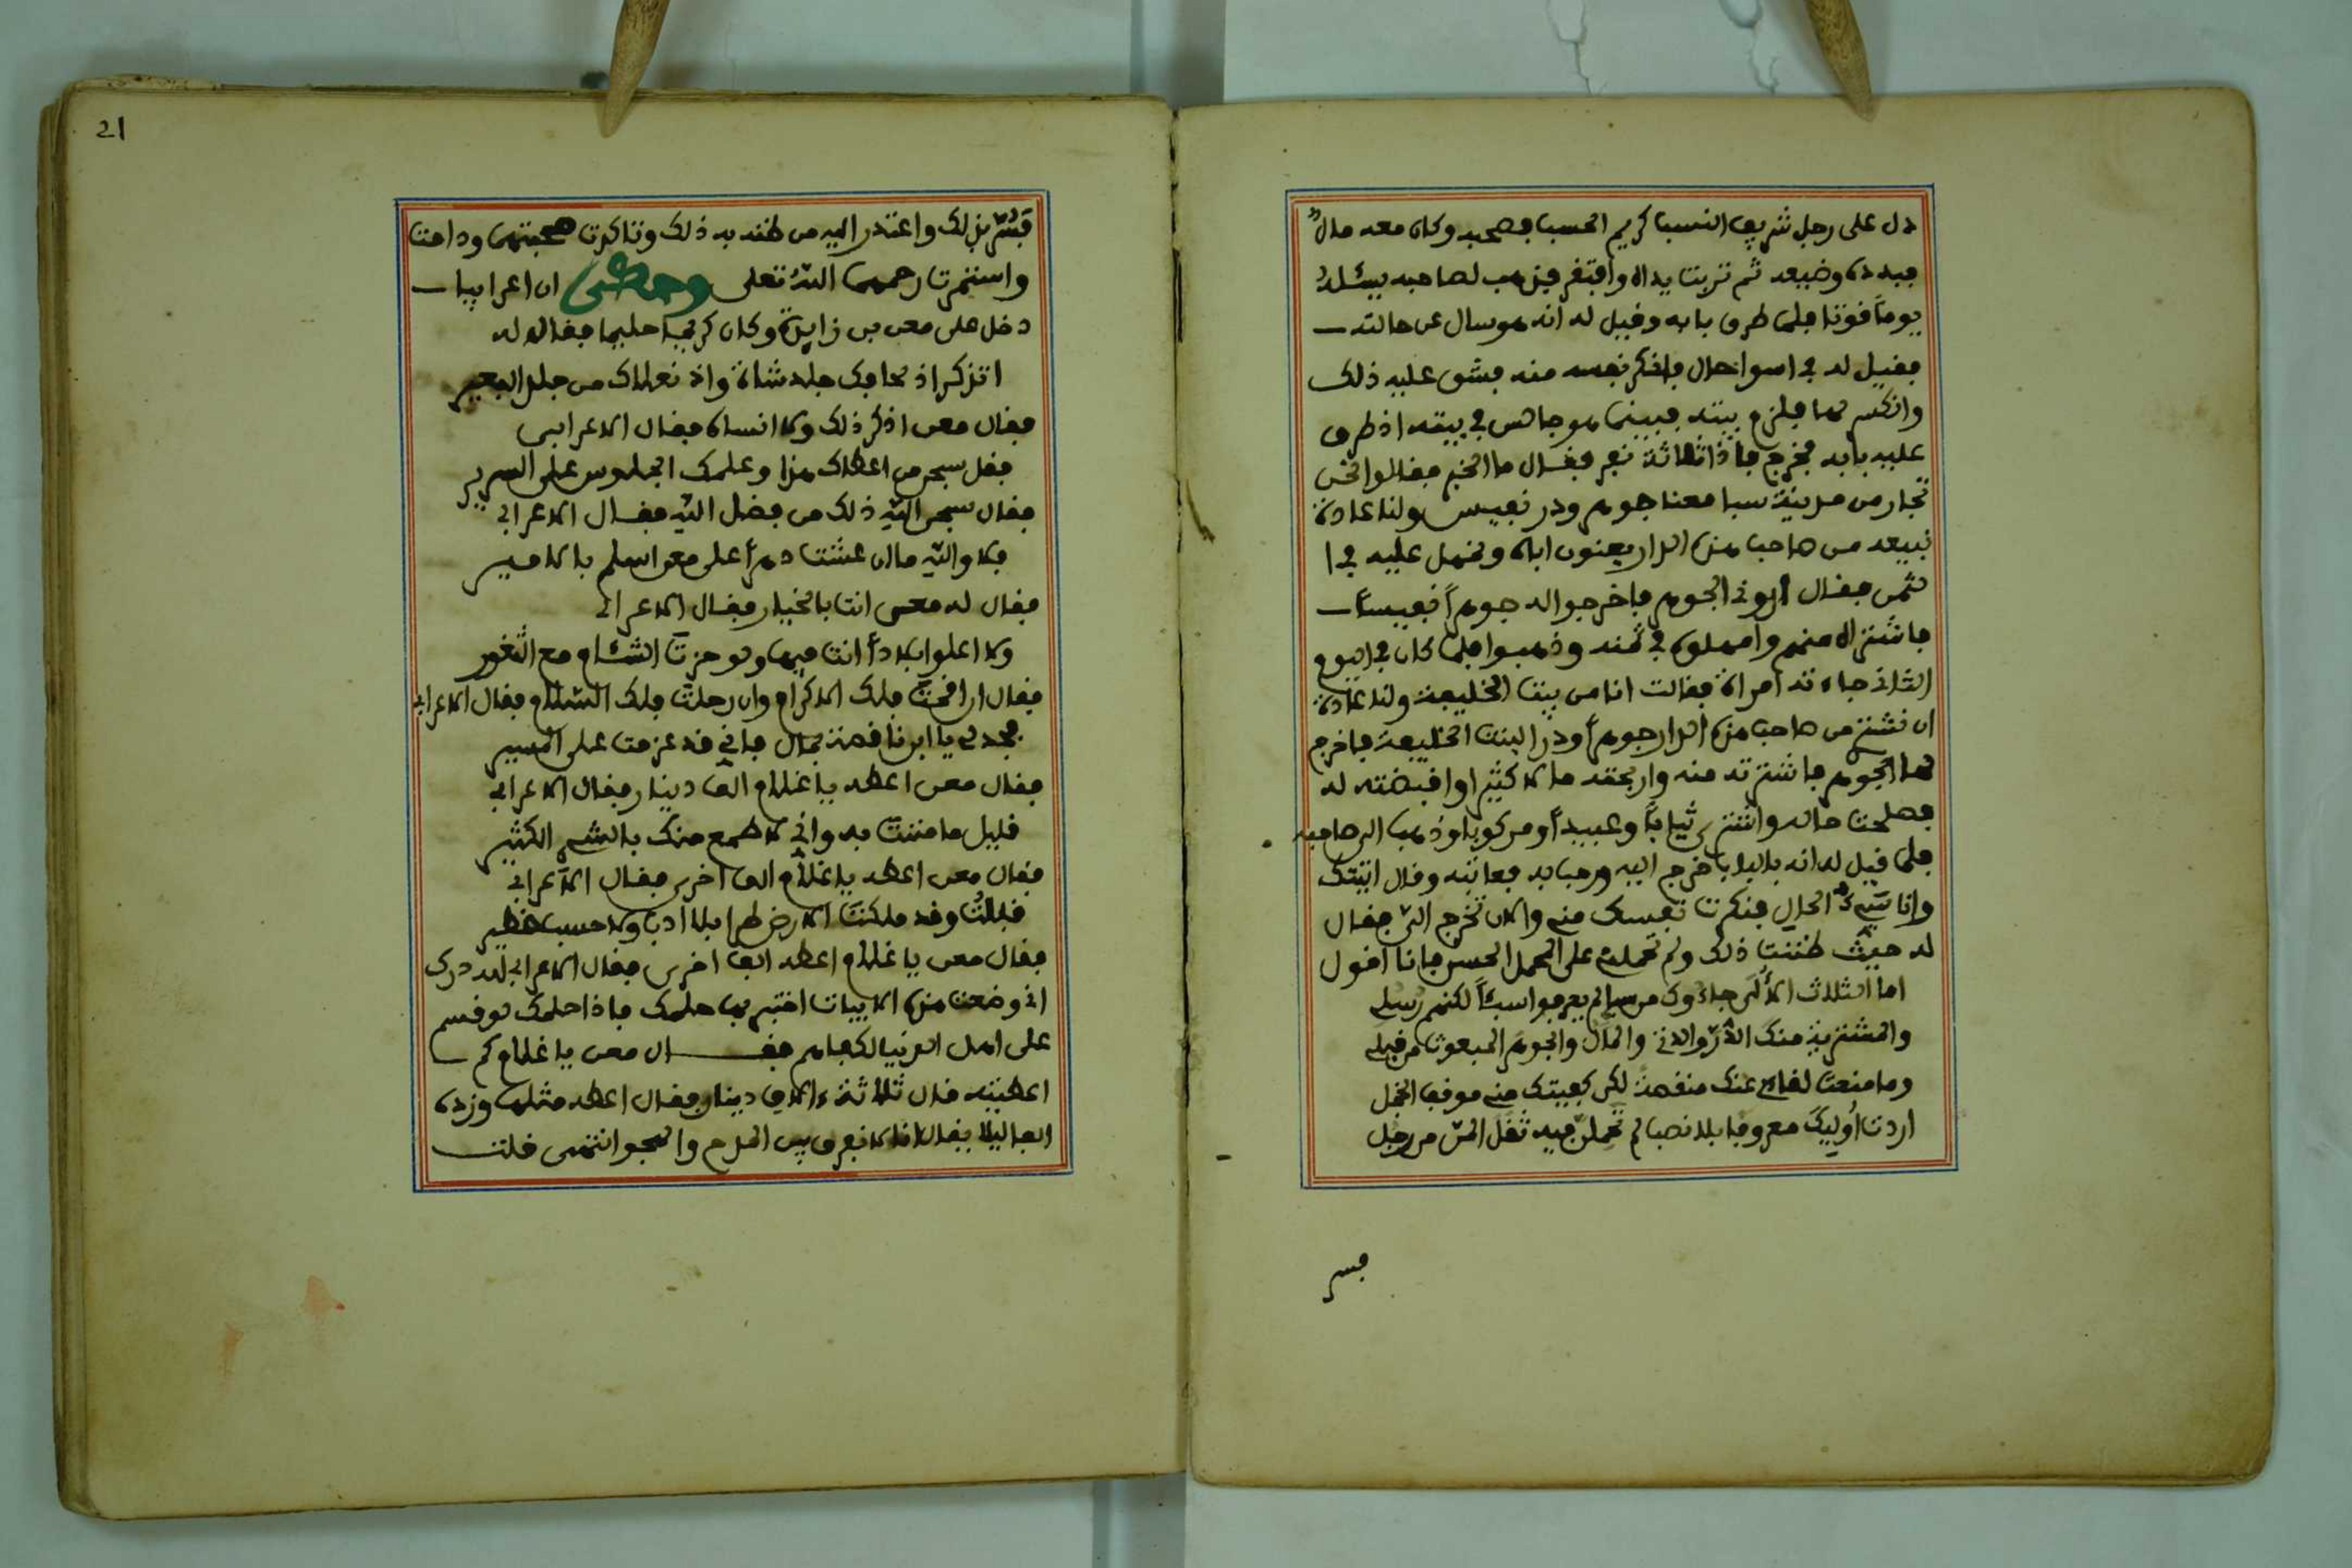 دل على رجل شريف النسب كريم الحسب فصحبه وكان معه مال
فبدده وضيعه ثم تربت يداه وافتقر فذهب لصاحبه يسئله
يوما قوتا فلما طرق بابه وقيل له انه هو سال عن حالته
فقيل له في اسوا حال فانكر نفسه منه فشق عليه ذلك
وانكسر لها فلزم بيته فبينما هو جالس في بيته اذ طرق
عليه بابه فخرج فاذا ثلاثة نفر فقال ما الخبر فقالوا نحن
تجار من مدينة سبا معنا جوهر ودر نفيس ولنا عادة
نبيعه من صاحب هذه الدار يعنون اباه ونمهل عليه في ا
لثمن فقال اروني الجوهر فاخرجوا له جوهرا نفيسا
فاشتراه منهم وامهلوه في ثمنه وذهبوا فلما كان في اليوم
الثاني جاءته امراة فقالت انا من بيت الخليفة ولنا عادة
ان نشتر من صاحب هذه الدار جوهرا ودرا لبنت الخليفة فاخرج
لها الجوهر فاشترته منه واربحته مالا كثيرا واقبضته له
فصلحت حاله واشترى ثيابا وعبيدا ومركوبا وذهب الى صاحبه
فلما قيل له انه بالباب خرج اليه ورحب به فعاتبه وقال اتيتك
وانا سيء الحال فنكرت نفسك مني والان تخرج الي فقال
له حيث ظننت ذلك ولم تحمله على المحمل الحسن فانا اقول
اما الثلاث الالى جاءوك من سبا لم يعرفوا سبئا لكنهم رسلي
والمشتريه منك الدر والدتي والمال والجوهر المبعوث من قبلي
وما منعت لقاءي عنك منقصة لكن كفيتك مني موقف الخجل
اردت اوليك معروفا بلا نصب لم تحملن فيه ثقل المن من رجل
فسر
21
فسر بذلك واعتذر اليه من ظنه به ذلك وتاكدت صحبتهما ودامت
واستمرت رحمهما الله تعلى وحكى ان اعرابيا
دخل على معن بن زايدة وكان كريما حليما فقال له
اتذكر اذ لحافك جلد شاة واذ نعلاك من جلد البعير
فقال معن اذكر ذلك ولا انساه فقال الاعرابي
فقل سبحن من اعطاك هذا وعلمك الجلوس على السرير
فقال سبحن الله ذلك من فضل الله فقال الاعرابي
فلا والله مالن عشت دهرا على معن اسلم بالامير
فقال له معن انت بالخيار فقال الاعرابي
ولا اعلوا بلادا انت فيها ولو حزت الشام مع الثغور
فقال ان اقمت فلك الاكرام وان رحلت فلك السلام فقال الاعرابي
فجد لي يا ابن ناقصة بمال فاني قد عزمت على المسير
فقال معن اعطه يا غلام الف دينار فقال الاعرابي
قليل ما مننت به واني لا طمع منك بالشيء الكثير
فقال معن اعطه يا غلام الف اخرى فقال الاعرابي
فقال معن يا غلام اعطه الفا اخرى فقال الاعرابي لله درك
اني وضعت هذه الابيات اختبر بها حلمك فاذا حلمك لو قسم
على اهل الدنيا لكفاهم فقال معن يا غلام كم
اعطيته قال ثلاثة ءالاف دينار فقال اعطه مثلها وزده
انتهى قلت